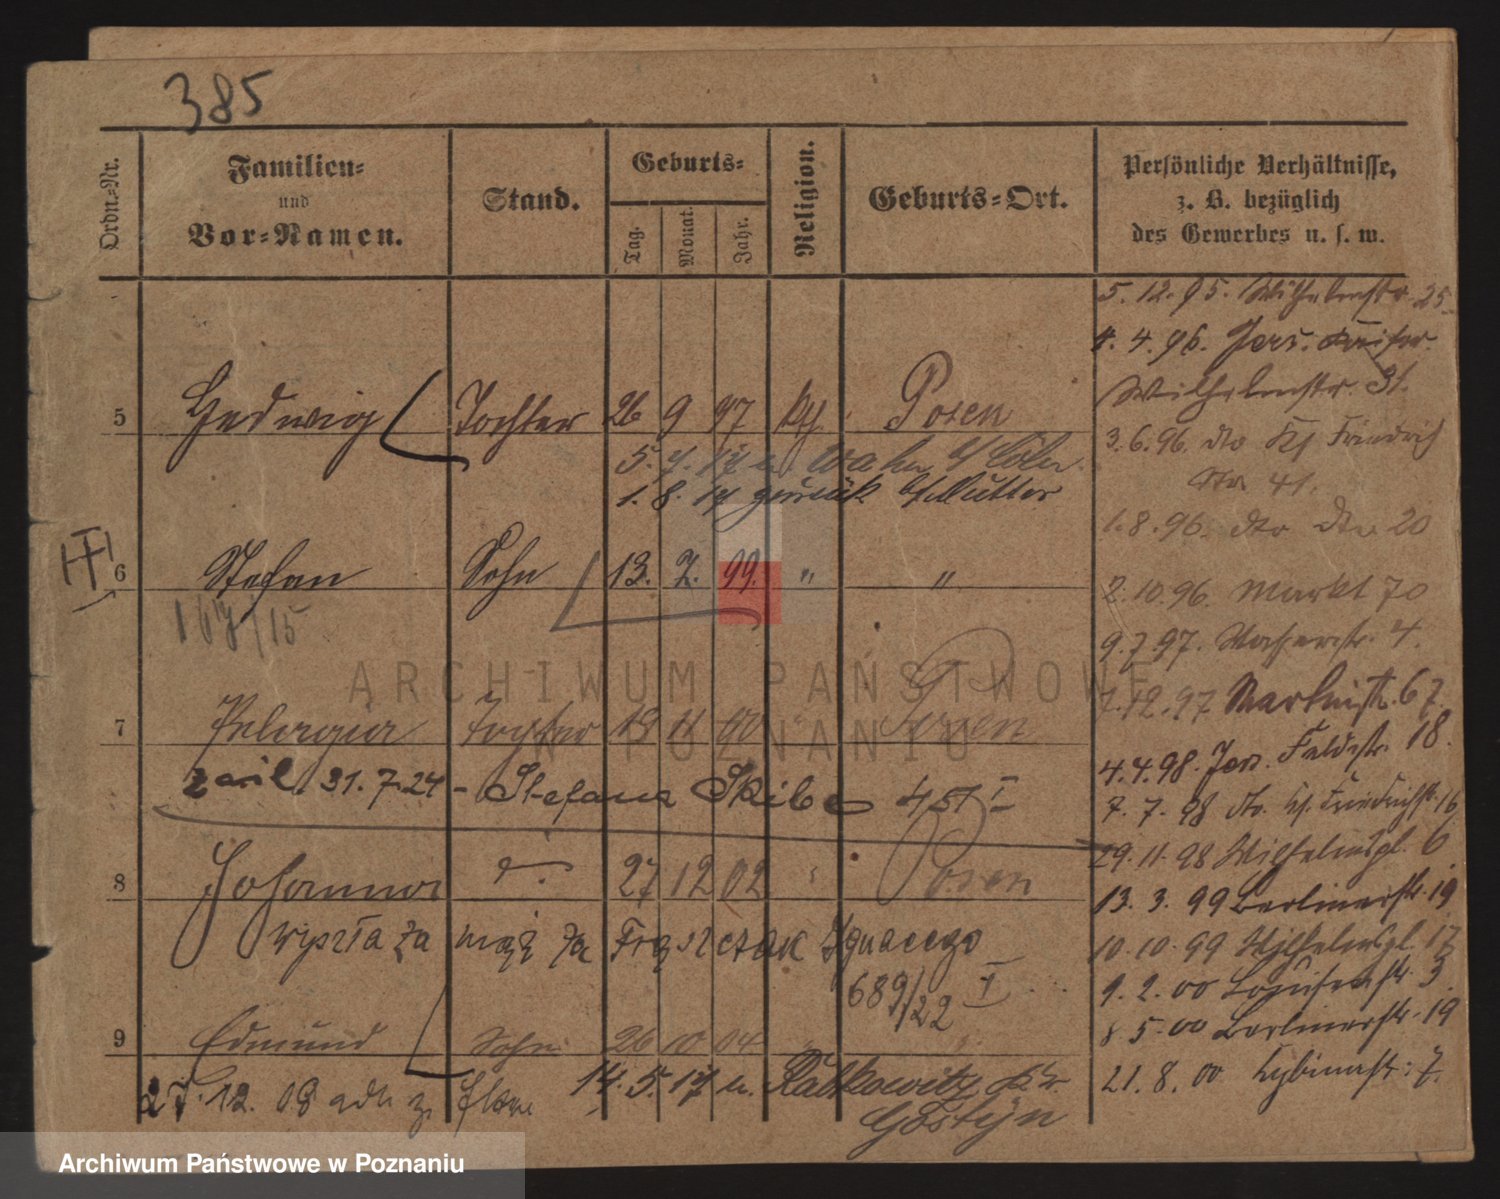 385
Ordn.-Nr.
Familien-
und
Vor-Namen.
Stand.
Geburts-
Tag.
Monat.
Jahr.
Religion.
Geburts-Ort.
Persönliche Verhältnisse,
z. B. bezüglich
des Gewerbes u. s. w.
5 Hedwig Tochter 26 9 97 kth. Posen
5. 7. 17 n. Wahn b/ Cöln
1. 8. 17 zurück b/ Mutter
6 Stefan Sohn 13. 7. 99. " "
167/15
7 Pelagia Tochter 19 11 00 Posen
31. 7. 24 - Stefana Skibe 451 I
8 Johanna 27 12 02 Posen
wyszła za mąż za Frąszczak Ignacego
689/22 I
9 Edmund Sohn 26 10 04
14. 5. 17 n. Ratkowitz Kr.
Gostyn
5. 12. 95. Wilhelmstr. 25.
4. 4. 96.
Wilhelmstr. 31.
3. 6. 96. dto Kl Friedrich
Str 41.
1. 8. 96. dto dto 20
2. 10. 96. Markt 70
9. 7. 97. Wasserstr. 4.
7. 12. 97 Martinstr. 67.
4. 4. 98. Jers. Feldstr. 18.
7. 7. 98 dto. Kl. Friedrichstr. 16
29. 11. 98 Wilhelmspl. 6
13. 3. 99 Berlinerstr. 19
10. 10. 99 Wilhelmspl. 17
9. 2. 00 Louisenstr. 3.
8 5. 00 Berlinerstr. 19
21. 8. 00 Lybinastr: 7.
ARCHIWUM PAŃSTWOWE
W POZNANIU
Archiwum Państwowe w Poznaniu